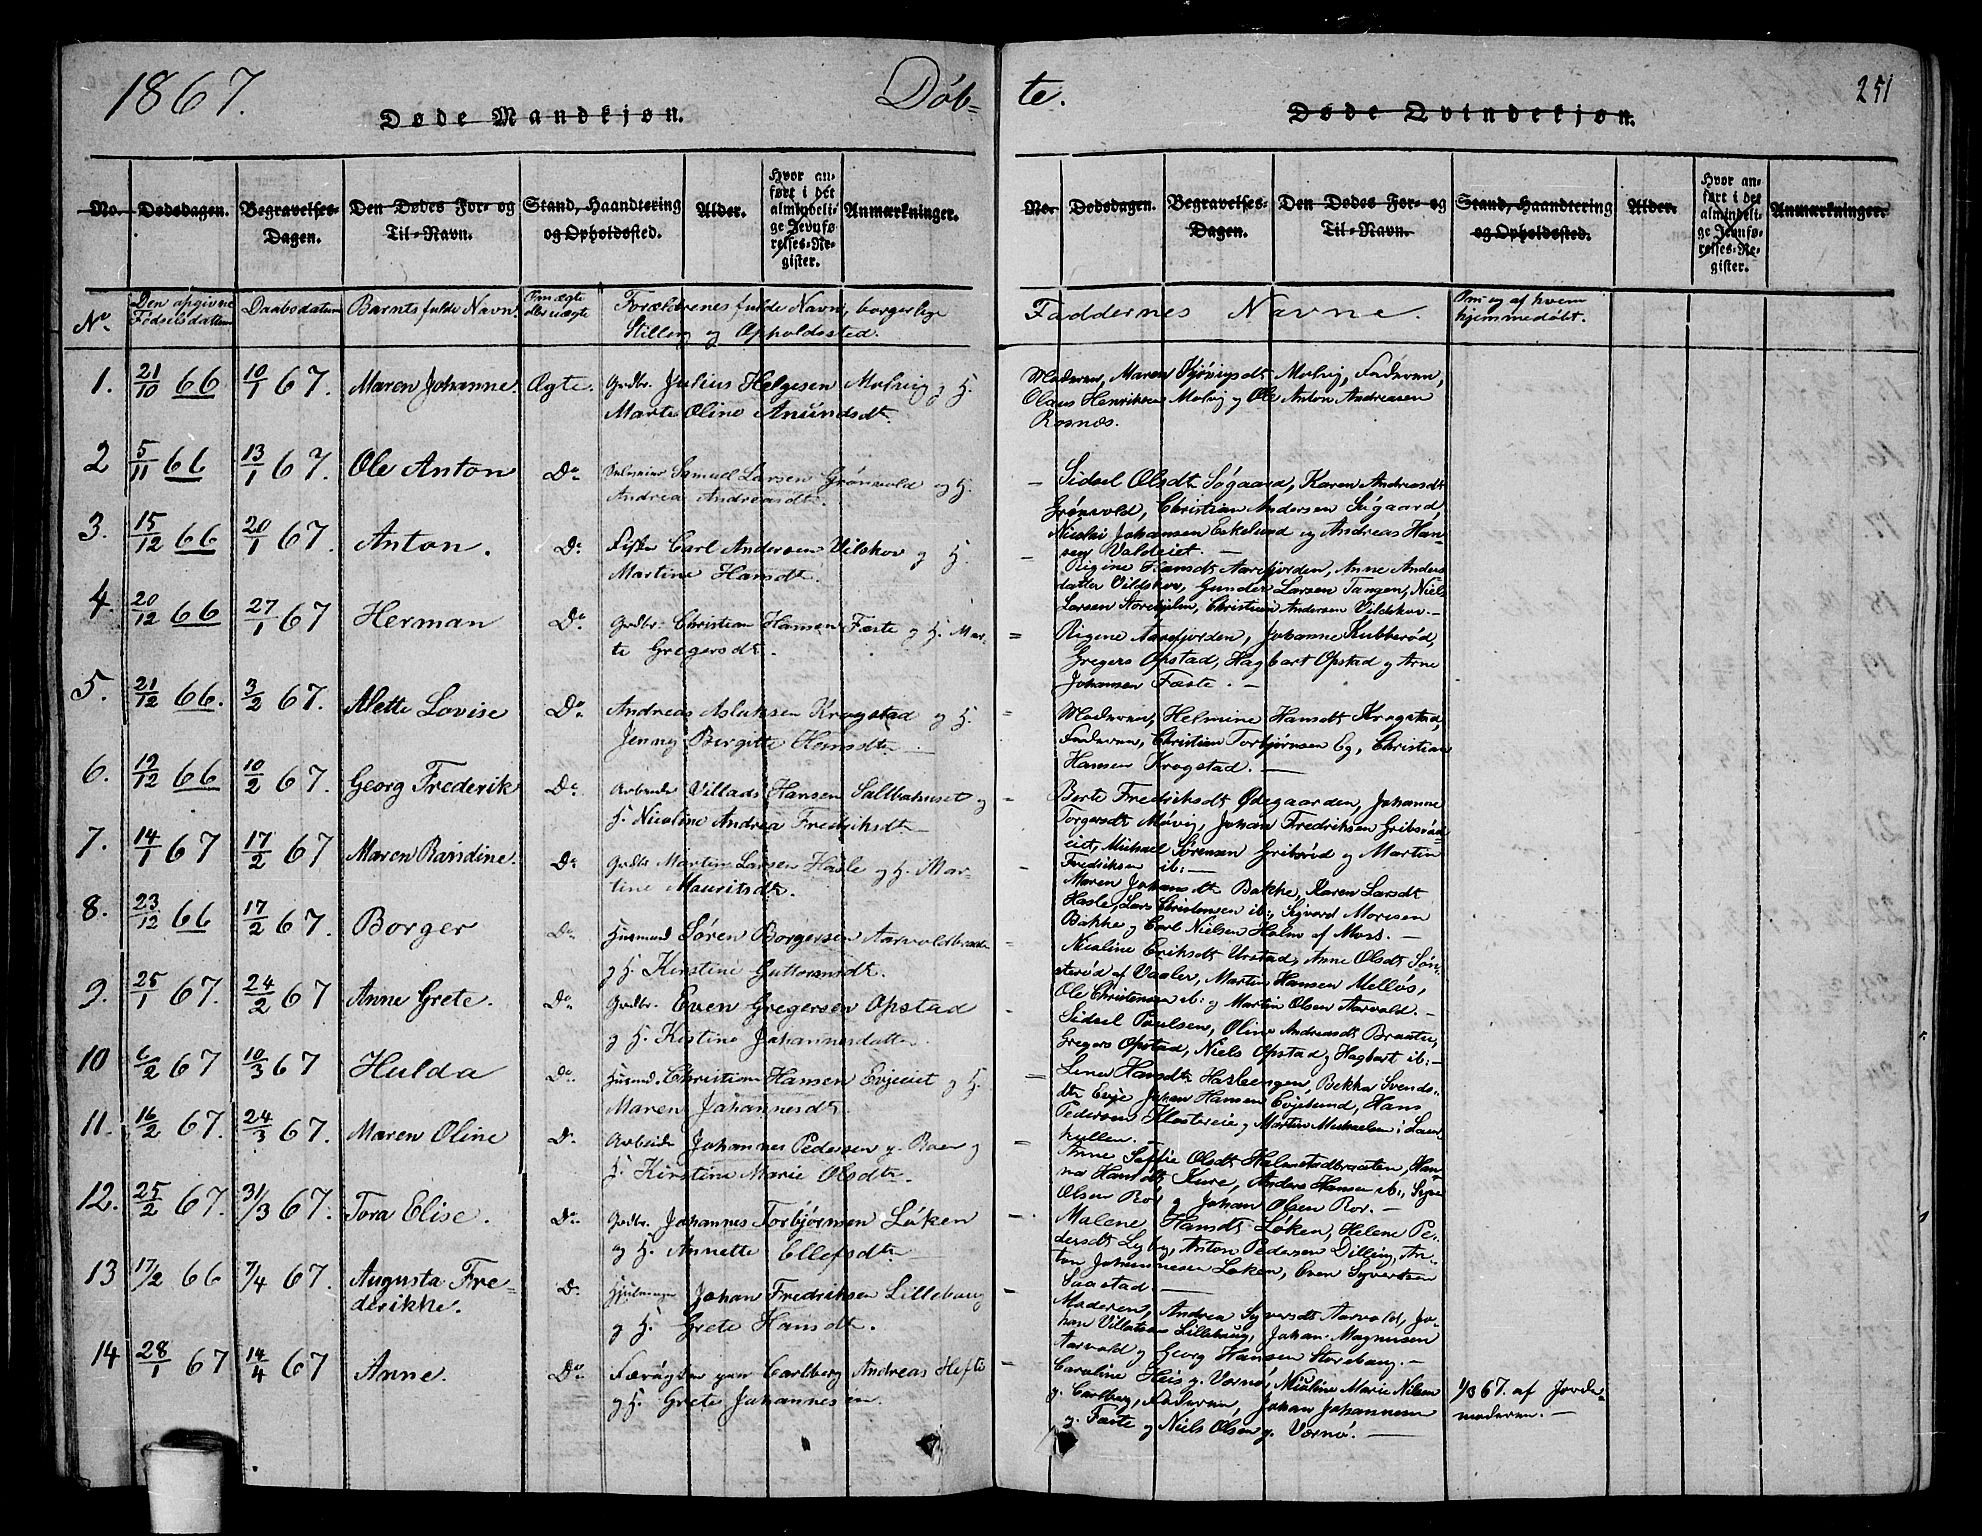 1867. Døb=
te. 251
Døde Mandkjøn.
Døde Qvindekjøn.
No. Dødsdagen. Begravelses-Dagen. Den Dødes For- og Til-Navn. Stand, Haandtering og Opholdssted. Alder. Hvor anført i det almindelige Jevnførelses-Register. Anmærkninger.
No. Dødsdagen. Begravelses-Dagen. Den Dødes For- og Til-Navn. Stand, Haandtering og Opholdssted. Alder. Hvor anført i det almindelige Jevnførelses-Register. Anmærkninger.
No. Den opgivne Fødselsdatum Daabsdatum Barnets fulde Navn. Om ægte eller uægte Forældrenes fulde Navn, borgerlige
Stilling og Opholdssted.
Faddernes Navne. Om og af hvem
hjemmedøbt.
1. 21/10 66 10/1 67. Maren Johanne. Ægte. Grdbr. Julius Helgesen Molvig og H.
Marte Oline Anundsdt.
Moderen, Maren Molvig, Faderen,
Olaus Henriksen Molvig og Ole Anton Andreasen
Rosnæs.
2 5/11 66 13/1 67. Ole Anton Do. Samuel Larsen Grønvold og H.
Andrea Andreasdt.
Sidsel Olsdt Søgaard, Karen Andreasdt
Grønvold, Christian Andersen Søgaard,
Nicolai Johansen Eskelund og Andreas Han-
sen
3. 15/12 66 20/1 67. Anton. Do. Fisker Carl Andersen Vilskov og H.
Martine Hansdt.
Rigine Hansdt Aarefjorden, Anne Anders
datter Vildskov, Gunder Larsen Tangen, Niels
Larsen Christian Andersen Vildskov.
4. 20/12 66 27/1 67 Herman Do. Grdbr. Christian Hansen Fæste og H. Mar-
te Gregersdt.
Rigene Aarefjorden, Johanne Kubberød,
Gregers Opstad, Hagbart Opstad og Arne
Johansen Fæste.
5. 21/12 66. 3/2 67. Alette Lovise Do. Andreas Aslaksen Krogstad og H.
Jenny Birgitte Hansdt
Moderen, Helmine Hansdt Krogstad,
Faderen, Christian Torbjørnsen Eg, Christian
Hansen Krogstad.
6. 12/12 66 10/2 67. Georg Frederik Do. Arbeider Villads Hansen Saltbohuset og
H. Nicoline Andrea Fredriksdt
Berte Fredriksdt Ødegaarden, Johanne
Torgersdt Møvig, Johan Fredriksen Gribsrød
eiet, Michael Sørensen Gribsrød og Martin
Fredriksen ib:
7. 14/1 67 17/2 67 Maren Randine. Do. Grdbr Martin Larsen Hasle og H. Mar-
tine Mauritsdt.
Maren Johansdt Bakke, Karen Larsdt
Hasle, Lars Christensen ib:, Syvert Morisen
Bakke og Carl Nielsen Holm af Moss.
8. 23/12 66 17/2 67. Borger Do. Husmand Søren Borgersen Aarvoldbraaten
og H. Kirstine Guttormsdt.
Nicoline Eriksdt Urstad, Anne Olsdt Søn-
sterød af Vaaler, Martin Hansen Melløs,
Ole Christensen ib: og Martin Olsen Aarvold.
9. 25/1 67. 24/2 67 Anne Grete. Do. Grdbr. Even Gregersen Opstad
og H. Kistine Johannesdatter
Sidsel Paulsen, Oline Andreasdt Braaten,
Gregers Opstad, Niels Opstad og Hagbart ib:
10 6/2 67 10/3 67 Hulda Do. Husmd. Christian Hansen Evjeeiet og H.
Maren Johannesdt.
Lene Hansdt Haslengen, Bekka Svends-
dt Evje Johan Hansen Evjelund, Hans
Pedersen Klostereie og Martin Michaelsen i
hullen.
11. 16/2 67. 24/3 67. Maren Oline Do. Arbeider Johannes Pedersen g. Roer og
H. Kirstine Marie Olsdt.
Anne Soffie Olsdt Halmstadbraaten, Han-
na Hansdt Kure, Anders Hansen ib:, Syver
Olsen Ror og Johan Olsen Ror.
12. 25/2 67. 31/3 67. Tora Elise. Do. Grdbr. Johannes Torbjørnsen Løken
og H. Annette Ellefsdt
Malene Hansdt Løken, Helene Pe-
dersdt Lyby, Anton Pedersen Dilling, An-
ton Johannesen Løken, Even Syvertsen
Saastad.
13 17/2 66 7/4 67. Augusta Fre-
derikke. Do. Johan Fredriksen Lillebaug
og H. Grete Hansdt.
Moderen, Andrea Syversdt Aarvold, Jo-
han Villatsen Lillebaug, Johan Magnusen
Aarvold og Georg Hansen Storebaug.
14 28/1 67 14/4 67 Anne. Do. Carlberg Andreas Hefte
og H. Grete Johannesen.
Caroline Heis g. Værnø, Nicoline Marie Nilsen
g. Carlberg, Faderen, Johan Johannesen
g. Fæste og Niels Olsen g. Værnø.
1/3 67. af Jorde-
moderen.